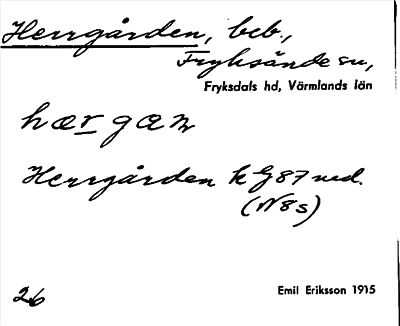 Herrgården, beb.,
Fryksände sn,
Fryksdals hd, Värmlands län
hærgan
Herrgården k G87 ned.
(N8s)
26
Emil Eriksson 1915